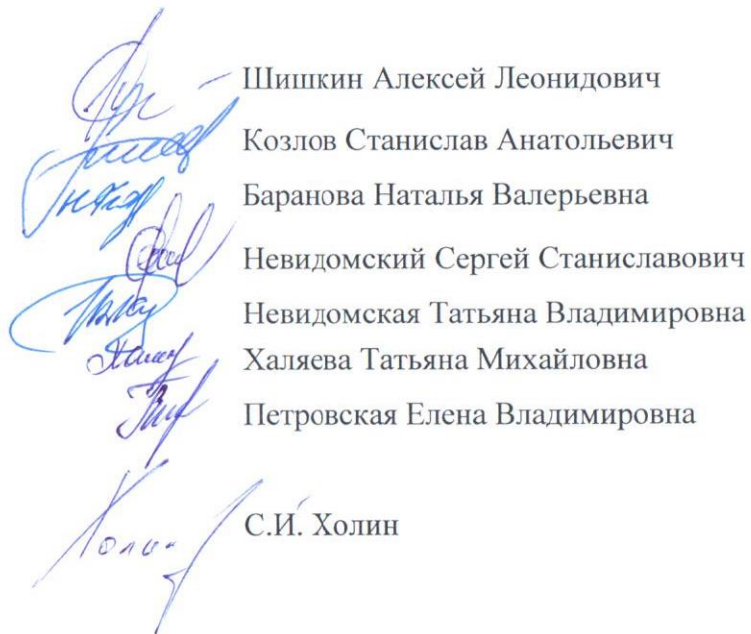 Шишкин Алексей Леонидович
Козлов Станислав Анатольевич
Баранова Наталья Валерьевна
Невидомский Сергей Станиславович
Невидомская Татьяна Владимировна
Халяева Татьяна Михайловна
Петровская Елена Владимировна
С.И. Холин